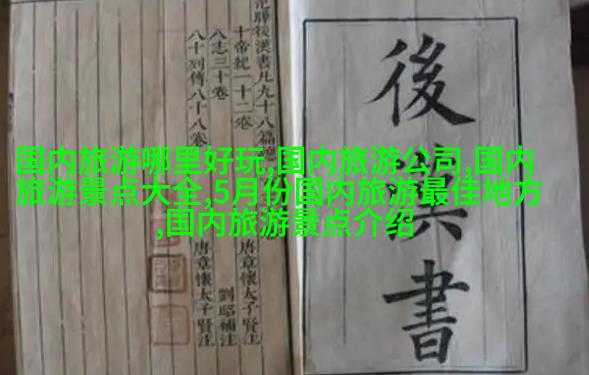 後漢書
范曄後漢書凡九十八篇
十帝紀一十二卷
八志三十卷
八十列傳八十八卷
唐章懷太子賢注
劉昭補注
唐章懷太子賢注
国内旅游哪里好玩,国内旅游公司,国内
旅游景点大全,5月份国内旅游最佳地方
,国内旅游景点介绍